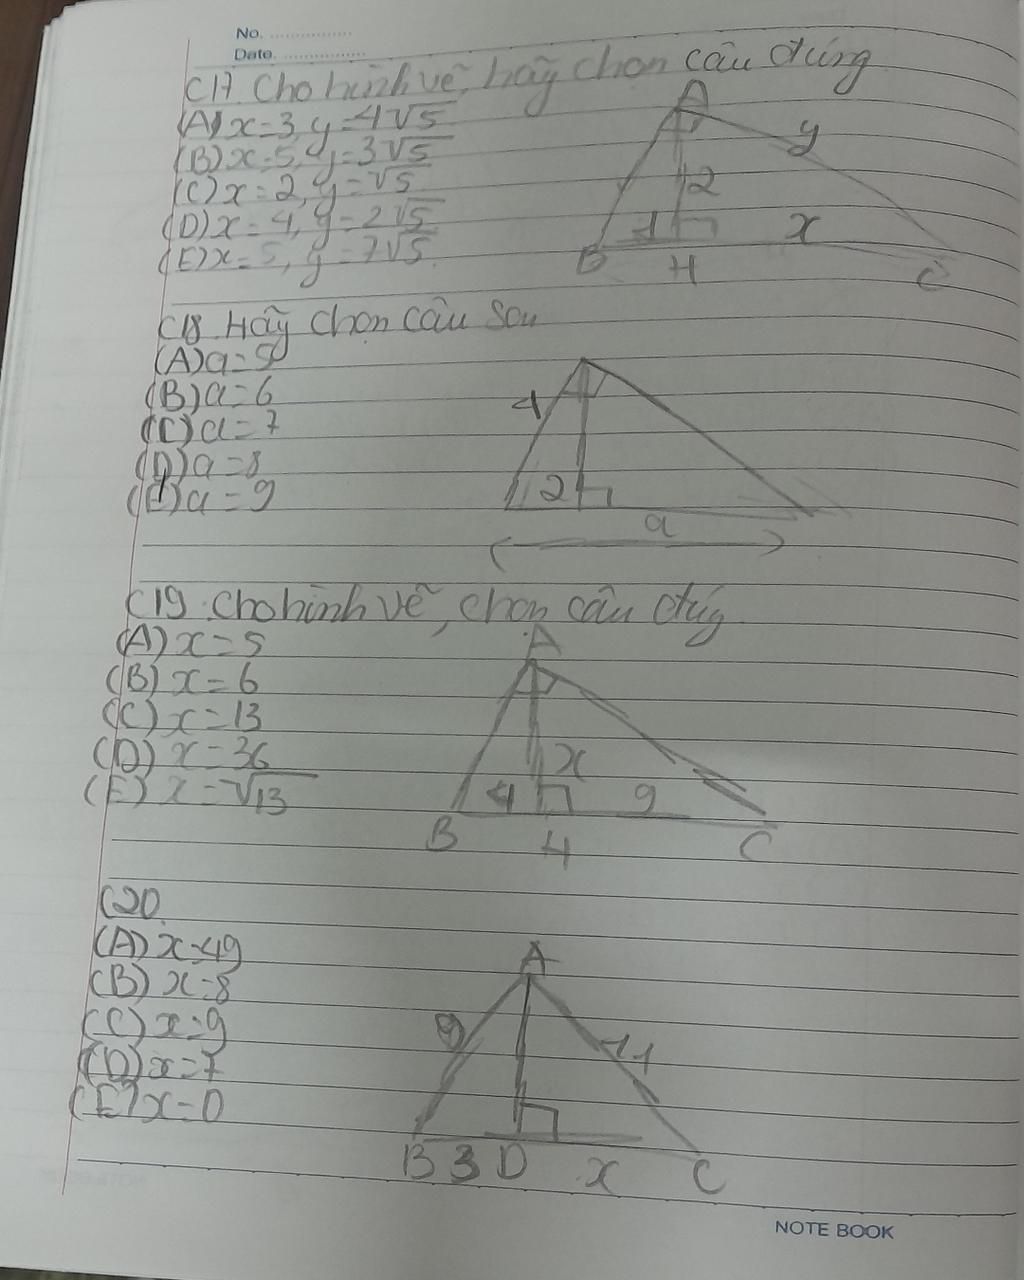 No. ................
Date. ................
C17. Cho hình vẽ, hãy chọn câu đúng
(A) x=3, y=4√5
(B) x=5, y=3√5
(C) x=2, y=√5
(D) x=4, y=2√5
(E) x=5, y=7√5
A
y
2
1
x
B
H
C
C18. Hãy chọn câu sau
(A) a=5
(B) a=6
(C) a=7
(D) a=8
(E) a=9
4
2
a
C19. Cho hình vẽ, chọn câu đúng
(A) x=5
(B) x=6
(C) x=13
(D) x=36
(E) x=√13
A
x
4
9
B
H
C
C20.
(A) x=49
(B) x=8
(C) x=9
(D) x=7
(E) x=0
A
9
11
B 3 D x C
NOTE BOOK